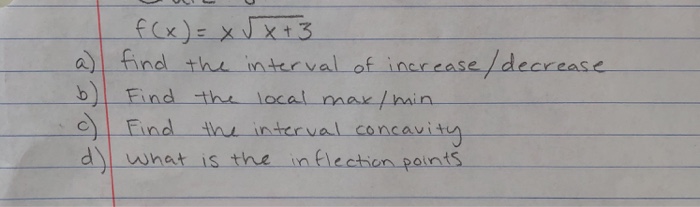 f(x) = x √x+3
a) find the interval of increase/decrease
b) Find the local max/min
c) Find the interval concavity
d) what is the inflection points